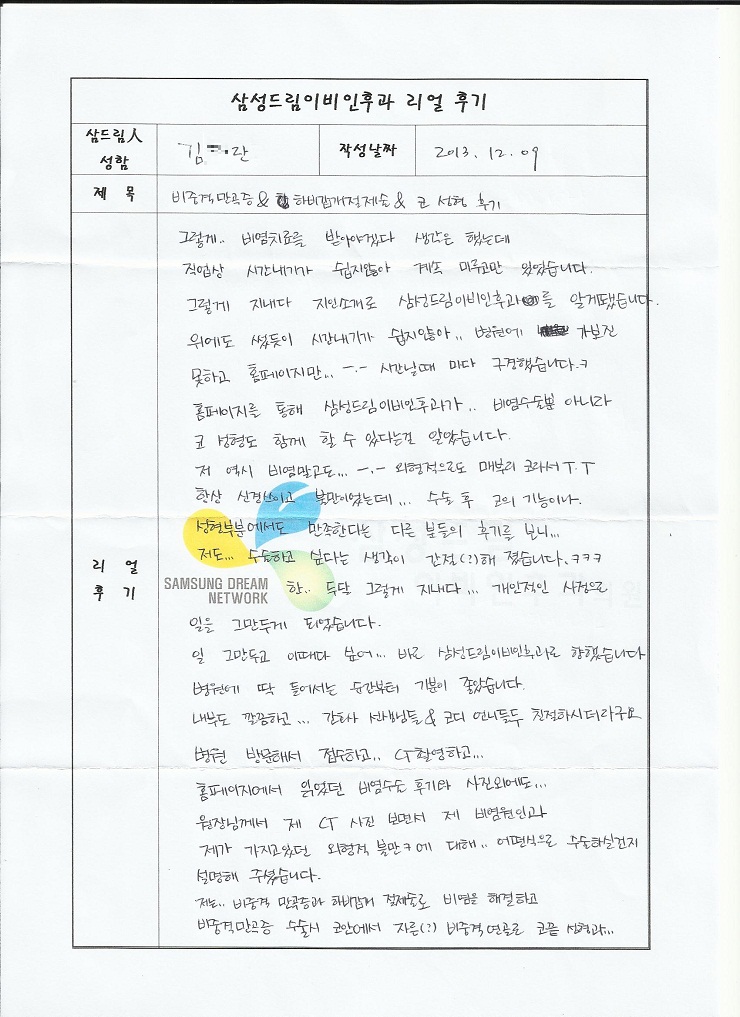 삼성드림이비인후과 리얼 후기
삼드림人
성함
김 란
작성날짜
2013. 12. 09
제 목
비중격만곡증 & 하비갑개절제술 & 코 성형 후기
그렇게.. 비염치료를 받아야겠다 생각은 했는데
직업상 시간내기가 쉽지않아 계속 미루고만 있었습니다.
그렇게 지내다 지인소개로 삼성드림이비인후과를 알게됐습니다.
위에도 썼듯이 시간내기가 쉽지않아.. 병원에 가보진
못하고 홈페이지만... -.- 시간날때 마다 구경했습니다.ㅋ
홈페이지를 통해 삼성드림이비인후과가.. 비염수술뿐 아니라
코 성형도 함께 할 수 있다는걸 알았습니다.
저 역시 비염말고도... -.- 외형적으로도 매부리 코라서 T.T
항상 신경쓰이고 불만이었는데... 수술 후 코의 기능이나.
성형부분에서도 만족한다는 다른 분들의 후기를 보니...
저도... 수술하고 싶다는 생각이 간절(?)해 졌습니다.ㅋㅋㅋ
한.. 두달 그렇게 지내다... 개인적인 사정으로
SAMSUNG DREAM
NETWORK
리 얼
후 기
일을 그만두게 되었습니다.
일 그만두고 이때다 싶어... 바로 삼성드림이비인후과로 향했습니다
병원에 딱 들어서는 순간부터 기분이 좋았습니다.
내부도 깔끔하고... 간호사 선생님들 & 코디 언니들두 친절하시더라구요
병원 방문해서 접수하고.. CT촬영하고...
홈페이지에서 읽었던 비염수술 후기와 사진외에도...
원장님께서 제 CT 사진 보면서 제 비염원인과
제가 가지고있던 외형적 불만ㅋ에 대해.. 어떤식으로 수술하실건지
설명해 주셨습니다.
저는.. 비중격 만곡증과 하비갑개 절제술로 비염을 해결하고
비중격만곡증 수술시 코안에서 자른(?) 비중격연골로 코끝 성형과...